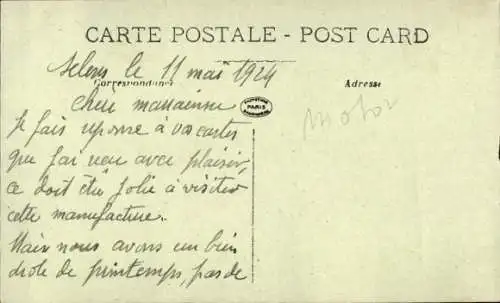 CARTE POSTALE - POST CARD
le 11 mai 1924
Correspondance
Adresse
chère marraine
PARIS
Je fais reponse à vos cartes
motor
que j'ai reçu avec plaisir,
ce doit être jolie à visiter
cette manufacture.
Mais nous avons un bien
drole de printemps, pas de